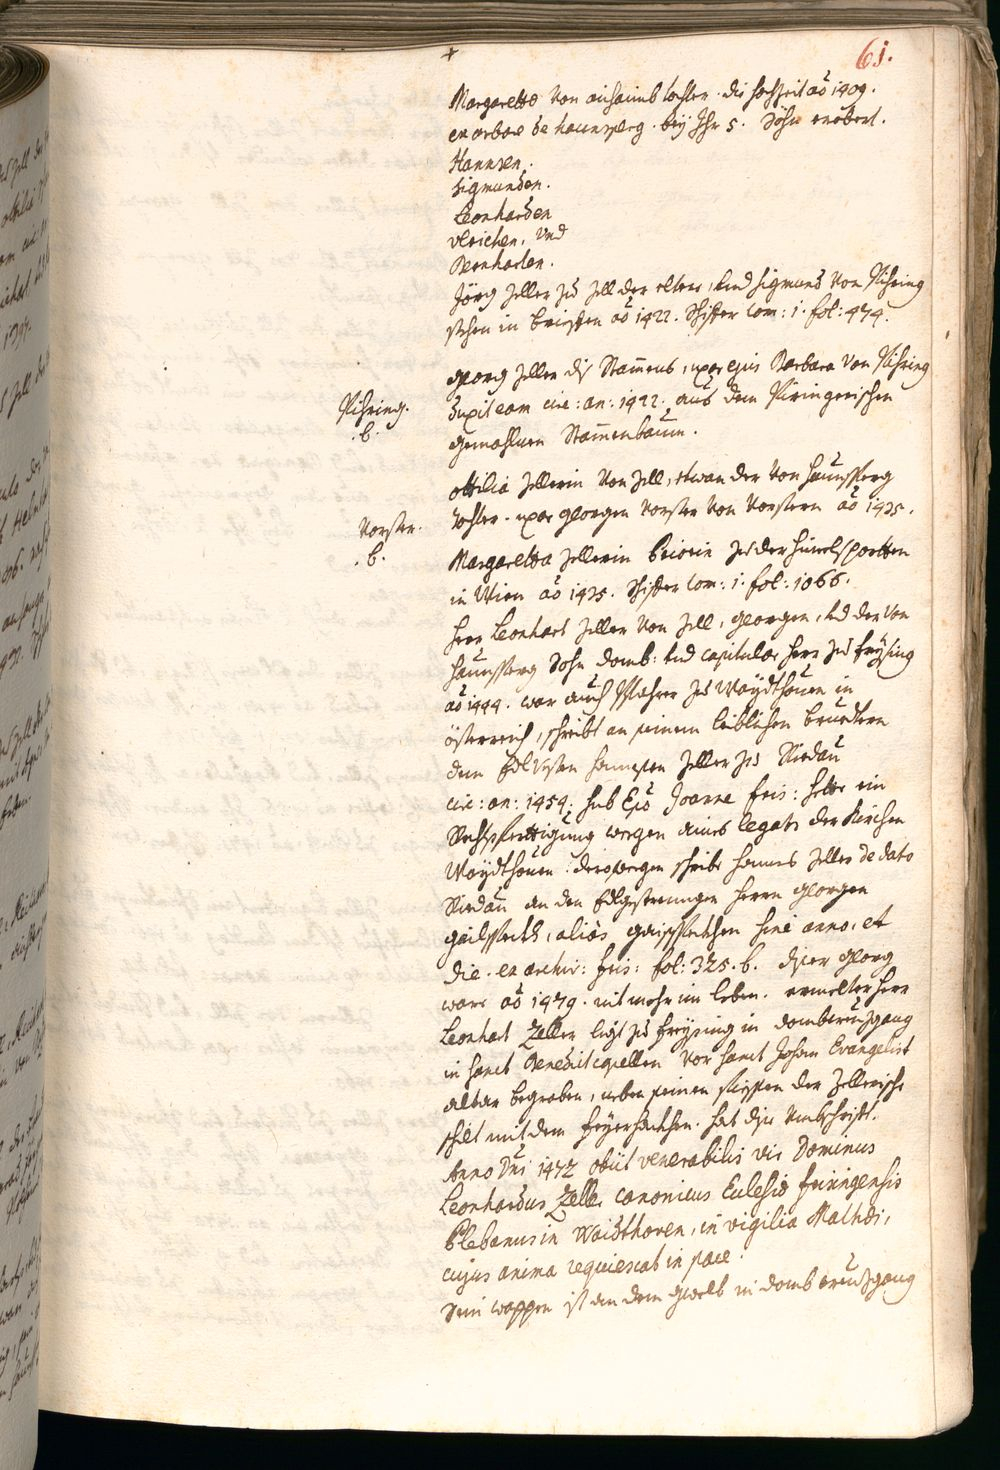 +
61.
Margaretta von aichaimb tochter. die hochzeit aõ 1409.
ex arbore de haunsperg. beÿ Ihr 5. Söhn erobert.
Hannsen.
Sigmunden.
Leonharden
Ulrichen, Und
Bernharten.
Jörg Zeller zu Zell der elter, und Sigmund von Pihring
stehen in brieffen aõ 1422. Schifter tom: 1. fol: 474.
georg Zeller diß Stam̄ens, uxor ejus Barbara von Pihring
Pihring.
.b.
duxit eam circ: an: 1422. aus dem Piringerischen
gemahlnen Stam̄enbaum.
ottilia Zellerin von Zell, etwan der von Haunsperg
Vorster.
.b.
tochter. uxor georgen Vorster von Vorstern aõ 1435.
Margaretta Zellerin Priorin zu der himelsportten
in Wien aõ 1435. Schifter tom: 1. fol: 1066.
herr Leonhart Zeller von Zell, georgen, und der von
haunsperg Sohn domb: und capitular herr zu freÿsing
aõ 1444. war auch Pfahrer zu Waydthouen in
össterreich, schreibt an seinem leiblichen bruedern
dem Edl Vesten hannsen Zeller zu Riedau
circ: an: 1454. sub Epõ Joanne fris: hette ein
Rechtferttigung wegen aines legats der Kirchen
Waydthouen: derowegen schribe hanns Zeller de dato
Riedau an den Edlgestrengen herrn georgen
alios sine anno, et
die. ex archiv: fris: fol: 325. b. diser georg
ware aõ 1479. nit mehr im leben. ermelter herr
Leonhart Zeller ligt zu freÿsing in dombcreuzgang
in sanct Benedict capellen vor sanct Johan Evangelist
altar begraben, neben seinen füessen der Zellerische
schilt mit dem hat dise Umbschrifft.
Anno Dñi 1472 obiit venerabilis vir Dominus
Leonhardus Zeller canonicus Eclesiæ frisingensis
Plebanus in Waidthoven, in vigilia Mathei,
cujus anima requiescat in pace.
Sein wappen ist an dem gwelb in domb creuzgang